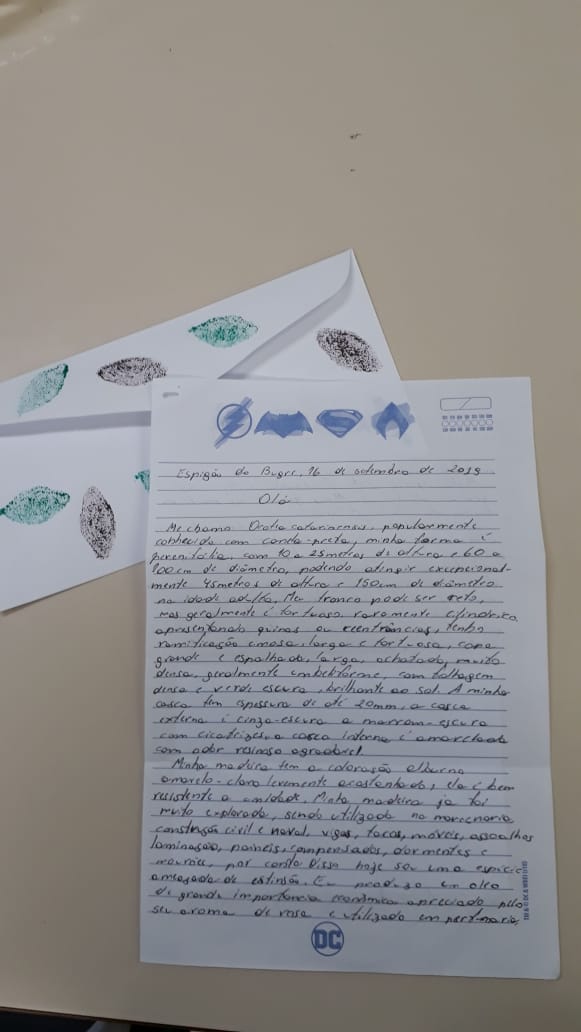 Espigão do Bugre, 16 de setembro de 2019
Olá
Me chamo Ocotea catarinensis, popularmente
conhecida com canela-preta, minha forma é
perenifólia, com 10 a 25 metros de altura e 60 a
100cm de diâmetro, podendo atingir excepcional-
mente 45metros de altura e 150cm de diâmetro
na idade adulta. Meu tronco pode ser reto,
mas geralmente é tortuoso, raramente cilíndrico,
apresentando quinas ou reentrâncias, tenho
ramificação cimosa, larga e tortuosa, copa
grande e espalhada, larga, achatada, muito
densa, geralmente umbeliforme, com folhagem
densa e verde escura, brilhante ao sol. A minha
casca tem espessura de até 20mm, a casca
externa é cinza-escura a marrom-escura
com cicatrizes, a casca interna é amarelada
com odor resinoso agradável.
Minha madeira tem a coloração alburno
amarelo-claro levemente acastanhado, ela é bem
resistente a umidade. Minha madeira já foi
muito explorada, sendo utilizada na marcenaria
construção civil e naval, vigas, tacos, móveis, assoalhos
laminação, paineis, compensados, dormentes e
moirões, por conta disso hoje sou uma espécie
ameaçada de extinsão. Eu produzo um óleo
de grande importância econômica apreciado pelo
seu aroma de rosa e utilizado em perfumaria,
DC